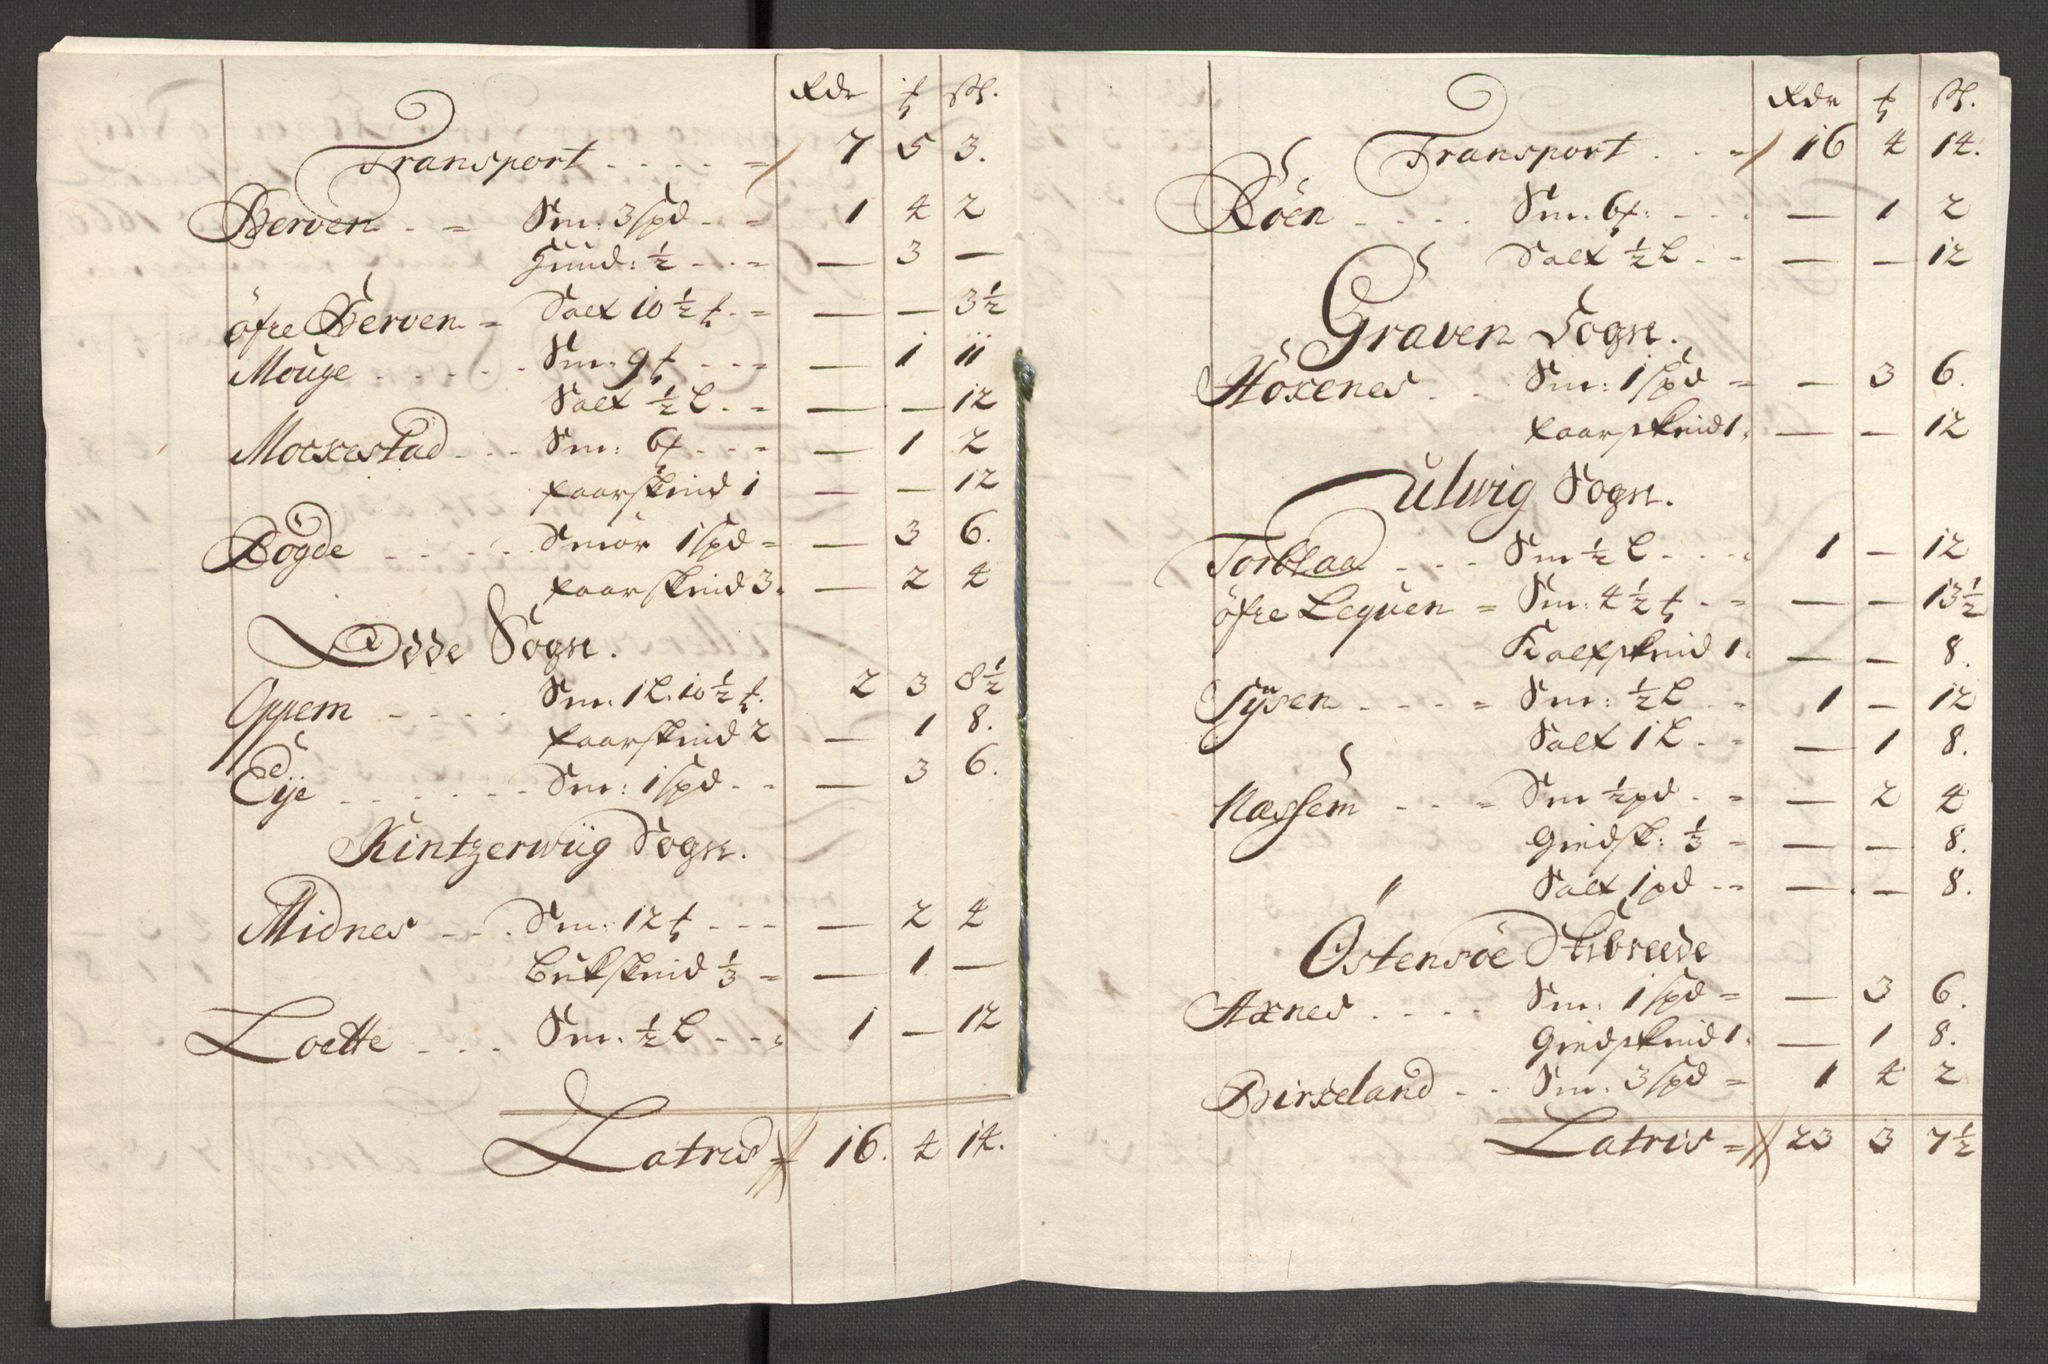 Rdr ℔ ß.
Transport . . . . = 7 5 3.
Berven . = Sm: 3 spd . . = 1 4 2
Huud: ½ . . . = — 3 —
öfre Berven = Salt 10½ ℔ . = — — 3½
Mouge . . . . . Sm: 9 ℔ . . . = — 1 11
Salt ½ L . = — — 12
Morkestad . . . Sm: 6 ℔ . . . = — 1 2
faarskind 1 — — 12
Bögde . . . . . Smör 1 spd = — 3 6.
faarskind 3 . — 2 4
Odde Sogn.
Oppem . . . . Sm. 1 L. 10½ ℔. 2 3 8½
faarskind 2 — 1 8.
Eije . . . . . . Sm: 1 spd . . — 3 6.
Kintzerwüg Sogn.
Midnes . . . Sm: 12 ℔ . . . — 2 4
Bukskind ⅓ = — 1 —
Lotte . . . Sm. ½ L . . = 1 — 12
Latris = 16. 4 14.
Rdr ℔ ß.
Transport . . = 16 4 14.
Röen . . . . Sm. 6 ℔: . . . — 1 2
Salt ½ L . . — — 12
Graven Sogn.
Höxenes . . Sm: 1 spd = — 3 6.
faarskind 1. — — 12
Ulwig Sogn.
Torblaa . . . Sm ½ L . . . . 1 — 12
öfre Lequen = Sm: 4½ ℔ . = — — 13½
Kalfskind 1. — — 8.
Sysen . . . . = Sm: ½ L . . 1 — 12
Salt 1 L . . — 1 8.
Næssem . . . = Sm ½ pd . = — 2 4
Giedsk: ⅓ = — — 8.
Salt 1 pd . . — — 8.
Östensöe Skibrede
Axnes . . . . Sm: 1 spd = — 3 6.
Giedskind 1. — 1 8.
Birkeland . . Sm: 3 spd = 1 4 2
Latris = 23 3 7½